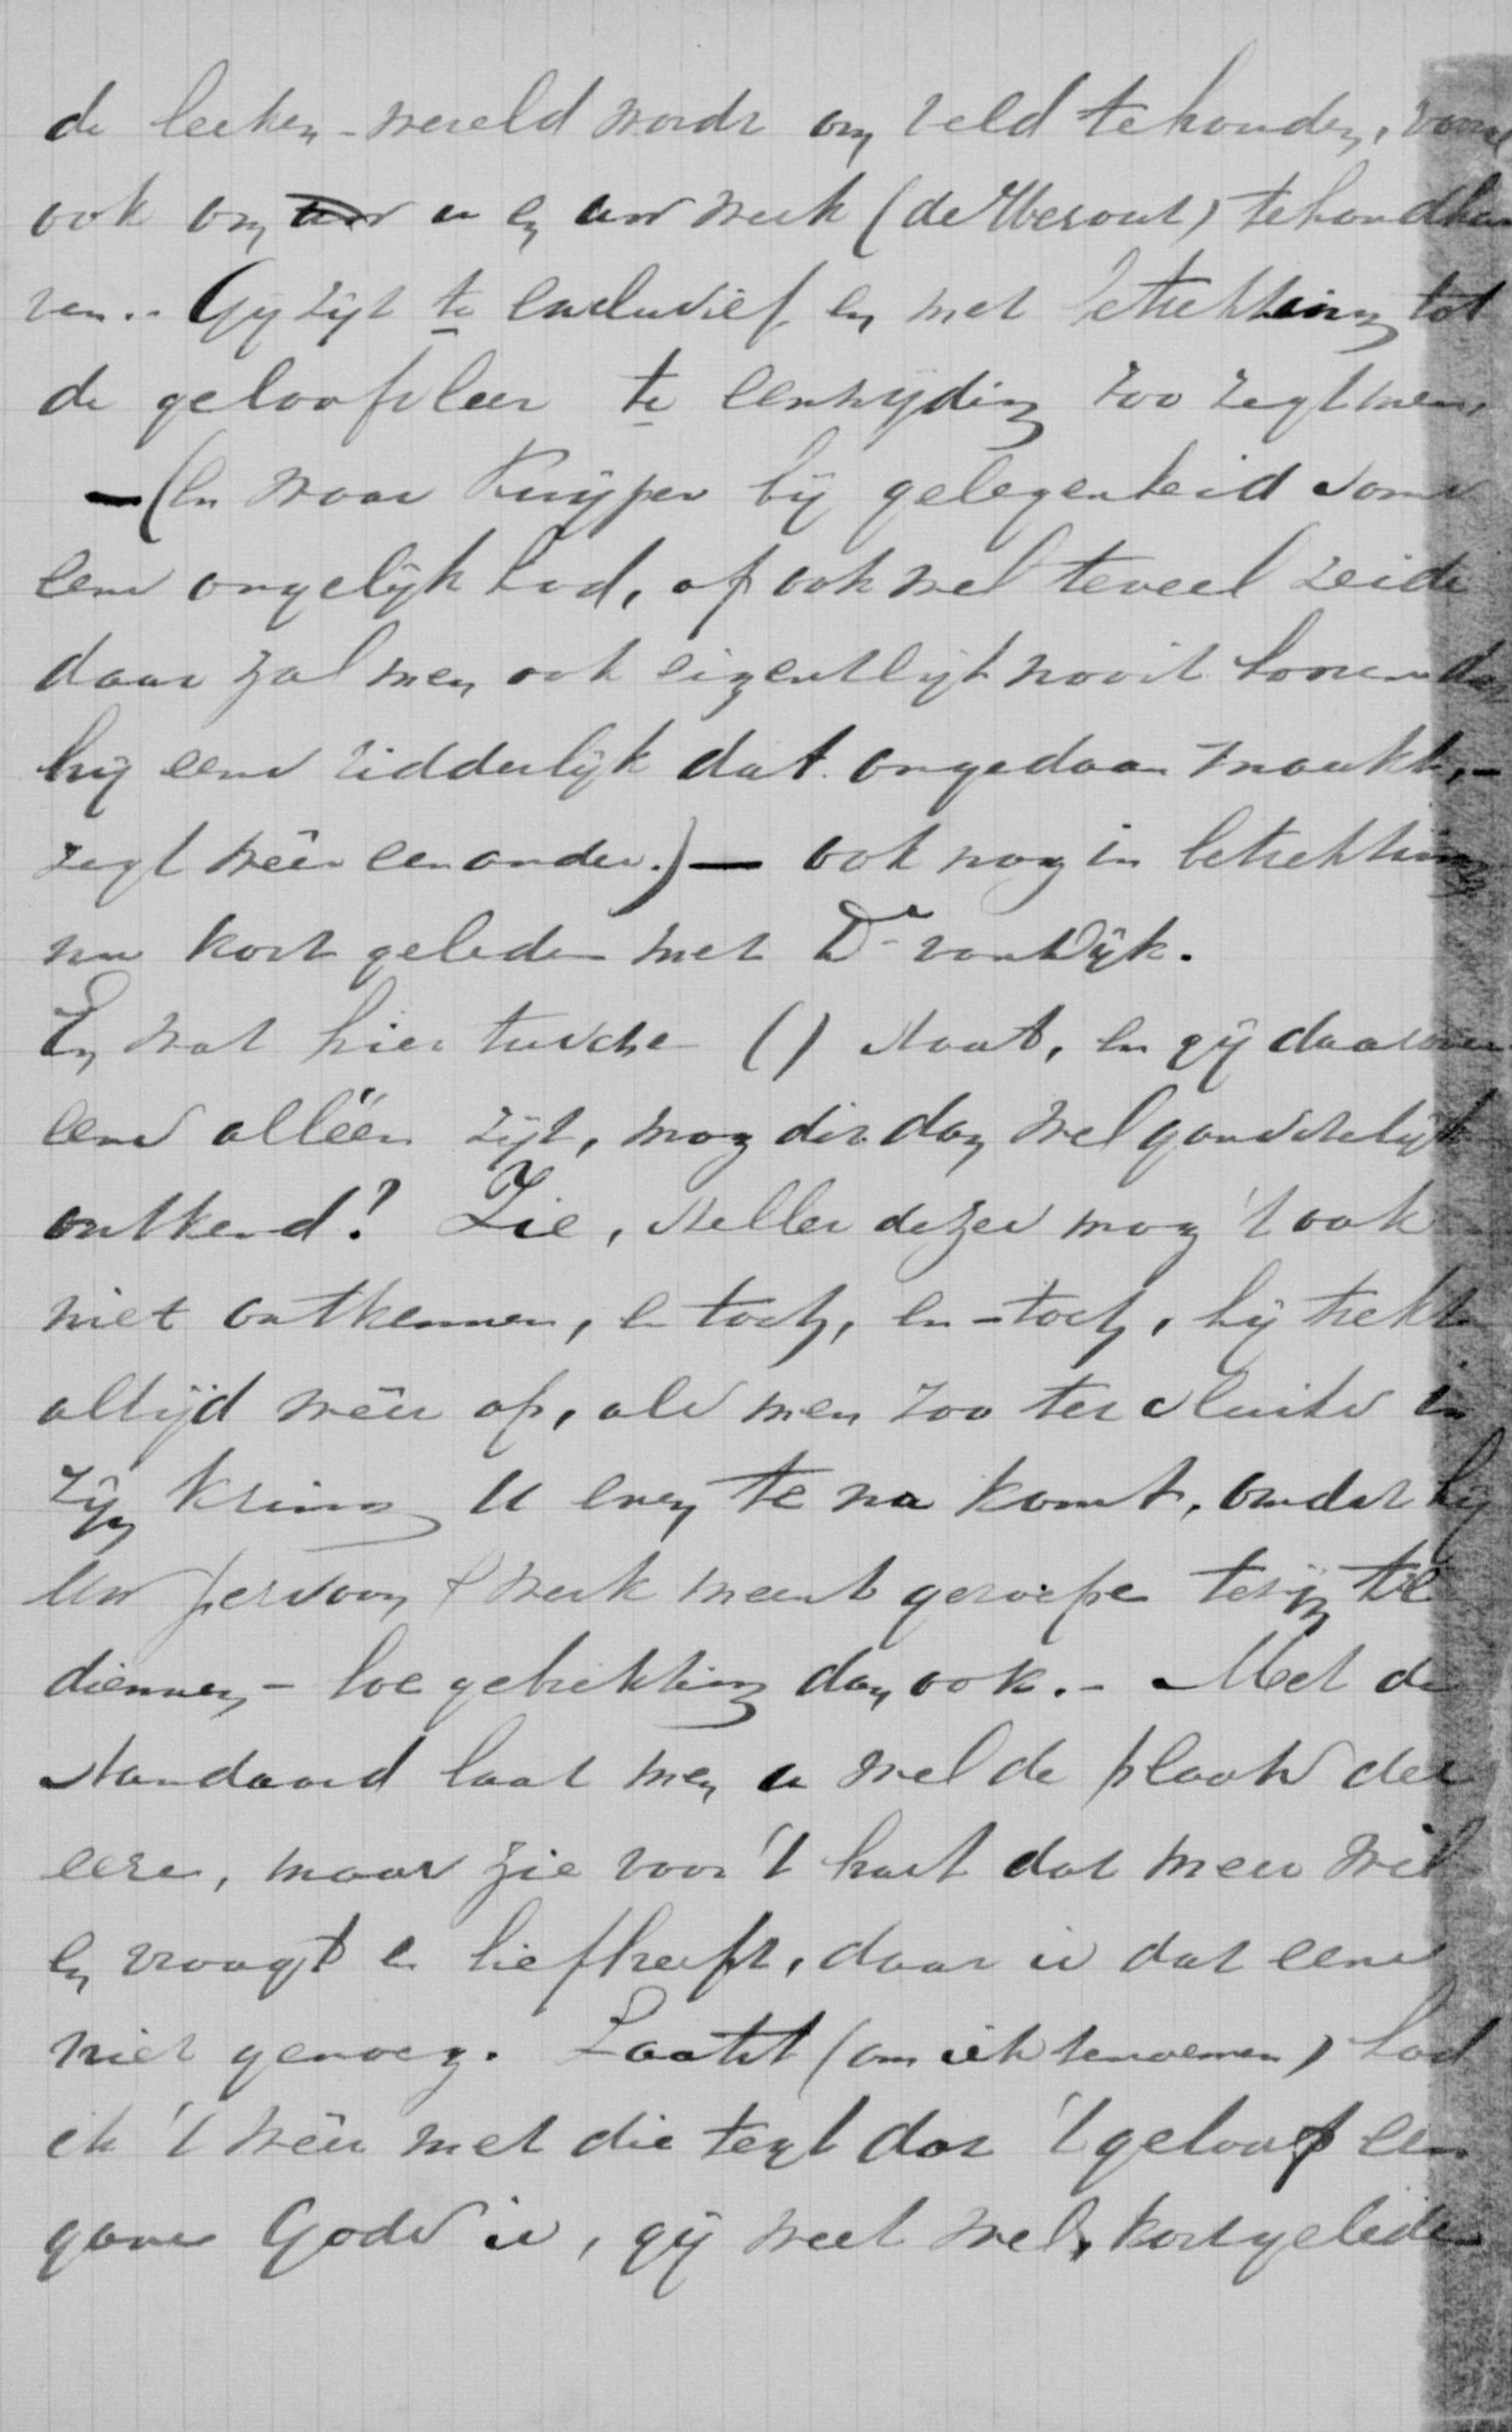 de leeken-wereld wordt om veld te houden, vooral
ook om uw u en uw werk (de Heraut) te handha
ven.. Gij zijt te exclusief en met betrekking tot
de geloofsleer te eenzijdig zoo zegt men,
— (En waar Kuijper bij gelegenheid soms
eens ongelijk had, of ook wel teveel zeide
daar zal men ook eigentlijk nooit hooren dat
hij eens ridderlijk dat ongedaan maakt, -
zegt wêer een ander.) — ook nog in betrekking
nu kort geleden met Dr van Dijk.
En wat hier tusche () staat, en gij daarover
eens alléén zijt, mag dit dan wel ganschelijk
ontkend? Zie, steller dezes mag 't ook
niet ontkennen, en toch, en-toch, hij trekt
altijd wêer op, als men zoo ter sluiks in
zijn kring u even te na komt, omdat hij
uw persoon & werk meent geroepe te zijn te
diennen, - hoe gebrekking dan ook. - Met de
standaard laat men u wel de plaats der
eere, maar zie voor 't hart dat meer wil
en vraagt en liefheeft, daar is dat eens
niet genoeg. Laatst (om iets te noemen) had
ik 't wêer met die text dat 't geloof een
gave Gods is, gij weet wel, kort geleden